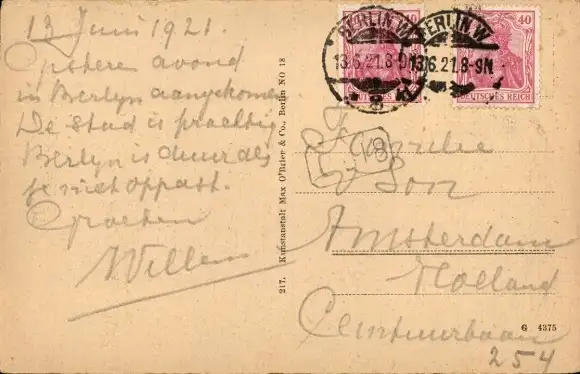 13 Juni 1921.
Gisteren avond
in Berlyn aangekomen
De stad is prachtig
Berlyn is duur als
je niet oppast.
Groeten
Willem
217. Kunstanstalt Max O'Brier & Co., Berlin NO 18
BERLIN W
13.6.21.8-9N.
40
DEUTSCHES REICH
BERLIN W
13.6.21.8-9N.
40
DEUTSCHES REICH
8
Familie
v Son
Amsterdam
Holland
Ceintuurbaan
254
G 4375